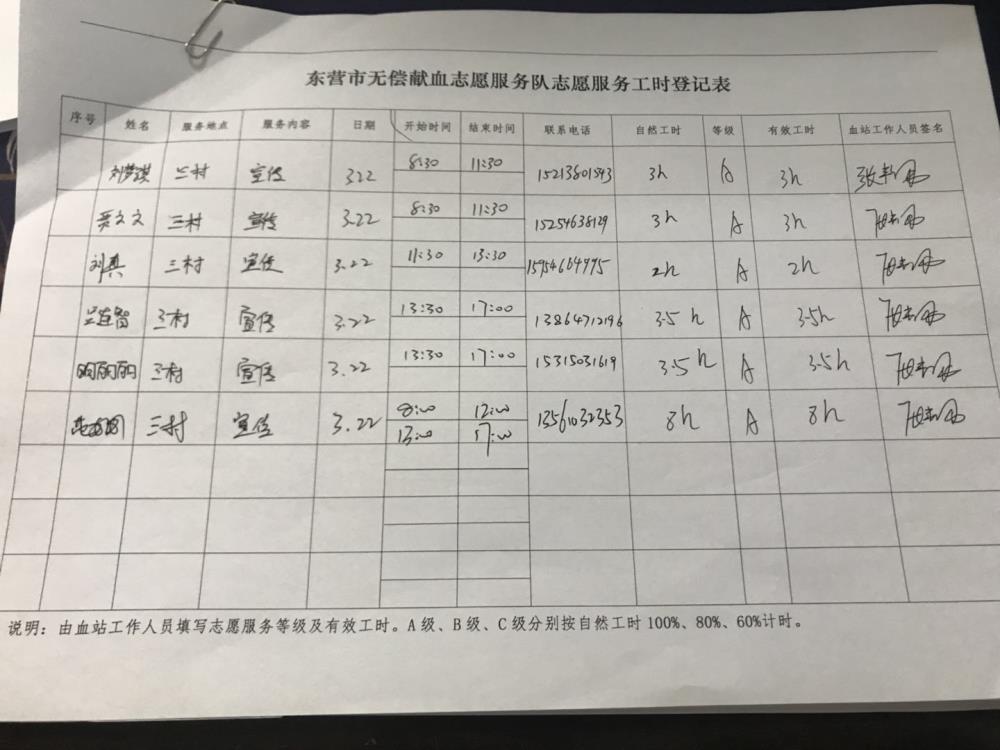 东营市无偿献血志愿服务队志愿服务工时登记表
序号 姓名 服务地点 服务内容 日期 开始时间 结束时间 联系电话 自然工时 等级 有效工时 血站工作人员签名
刘梦琪 三村 宣传 3.22 8:30 11:30 15213801543 3h A 3h
三村 宣传 3.22 8:30 11:30 15254638129 3h A 3h
刘真 三村 宣传 3.22 11:30 13:30 15954664995 2h A 2h
三村 宣传 3.22 13:30 17:00 13864712196 3.5h A 3.5h
三村 宣传 3.22 13:30 17:00 15315031619 3.5h A 3.5h
三村 宣传 3.22 8:00 12:00 13561032353 8h A 8h
13:00 17:00
说明：由血站工作人员填写志愿服务等级及有效工时。A级、B级、C级分别按自然工时100%、80%、60%计时。